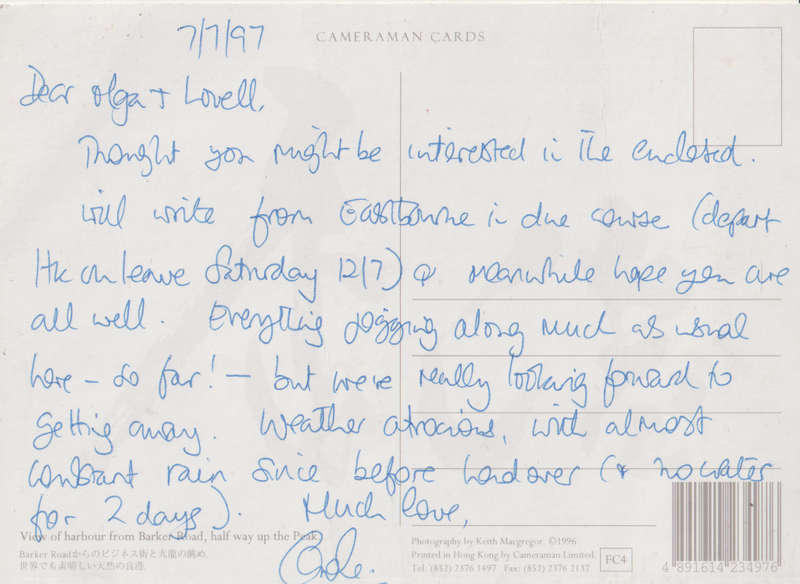 7/7/97
CAMERAMAN CARDS
Dear Olga + Lovell,
Thought you might be interested in the enclosed.
Will write from Eastbourne in due course (depart
HK on leave Saturday 12/7) & meanwhile hope you are
all well. Everything jogging along much as usual
here - so far! - but we're really looking forward to
getting away. Weather atrocious, with almost
constant rain since before handover (& no water
for 2 days). Much love,
View of harbour from Barker Road, half way up the Peak.
Barker Roadからのビジネス街と九龍の眺め。
世界でも素晴しい天然の良港。
Photography by Keith Macgregor. ©1996
Printed in Hong Kong by Cameraman Limited.
Tel: (852) 2376 1497 Fax: (852) 2376 2137
FC4
4 891614 234976